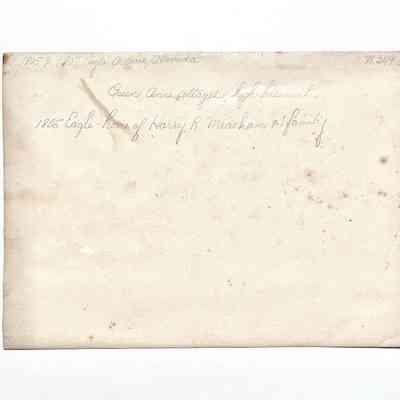 Eagle Avenue, Alameda
Queen Anne cottage, high basement
1825 Eagle - Home of Harry R. Meacham & family